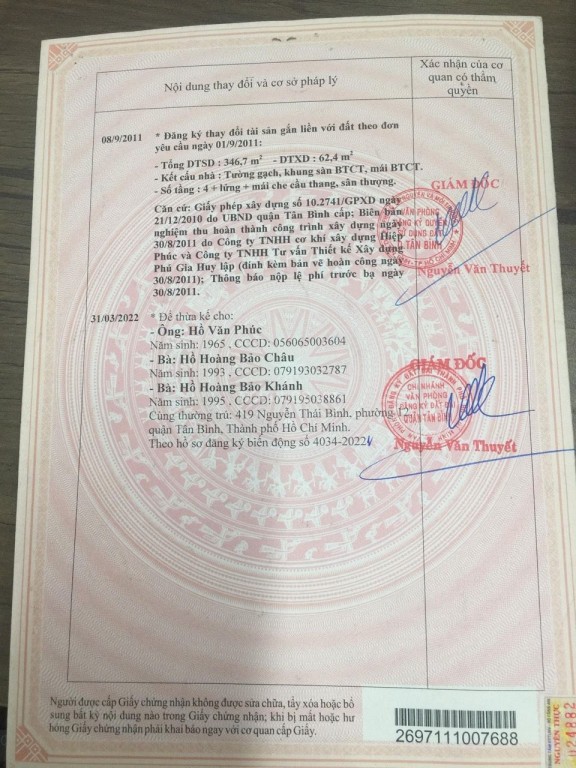 Nội dung thay đổi và cơ sở pháp lý
Xác nhận của cơ
quan có thẩm
quyền
08/9/2011
* Đăng ký thay đổi tài sản gắn liền với đất theo đơn
yêu cầu ngày 01/9/2011:
- Tổng DTSD : 346,7 m² - DTXD : 62,4 m²
- Kết cấu nhà : Tường gạch, khung sàn BTCT, mái BTCT.
- Số tầng : 4 + lửng + mái che cầu thang, sân thượng.
Căn cứ: Giấy phép xây dựng số 10.2741/GPXD ngày
21/12/2010 do UBND quận Tân Bình cấp; Biên bản
nghiệm thu hoàn thành công trình xây dựng ngày
30/8/2011 do Công ty TNHH cơ khí xây dựng Hiệp
Phúc và Công ty TNHH Tư vấn Thiết kế Xây dựng
Phú Gia Huy lập (đính kèm bản vẽ hoàn công ngày
30/8/2011); Thông báo nộp lệ phí trước bạ ngày
30/8/2011.
GIÁM ĐỐC
VĂN PHÒNG
ĐĂNG KÝ QUYỀN
SỬ DỤNG ĐẤT
TÂN BÌNH
Nguyễn Văn Thuyết
31/03/2022
* Để thừa kế cho:
- Ông: Hồ Văn Phúc
Năm sinh: 1965 , CCCD: 056065003604
- Bà: Hồ Hoàng Bảo Châu
Năm sinh: 1993 , CCCD: 079193032787
- Bà: Hồ Hoàng Bảo Khánh
Năm sinh: 1995 , CCCD: 079195038861
Cùng thường trú: 419 Nguyễn Thái Bình, phường 12,
quận Tân Bình, Thành phố Hồ Chí Minh.
Theo hồ sơ đăng ký biến động số 4034-2022
GIÁM ĐỐC
CHI NHÁNH
VĂN PHÒNG
ĐĂNG KÝ ĐẤT ĐAI
QUẬN TÂN BÌNH
Nguyễn Văn Thuyết
Người được cấp Giấy chứng nhận không được sửa chữa, tẩy xóa hoặc bổ
sung bất kỳ nội dung nào trong Giấy chứng nhận; khi bị mất hoặc hư
hỏng Giấy chứng nhận phải khai báo ngay với cơ quan cấp Giấy.
2697111007688
NGUYỄN THỨC
024882